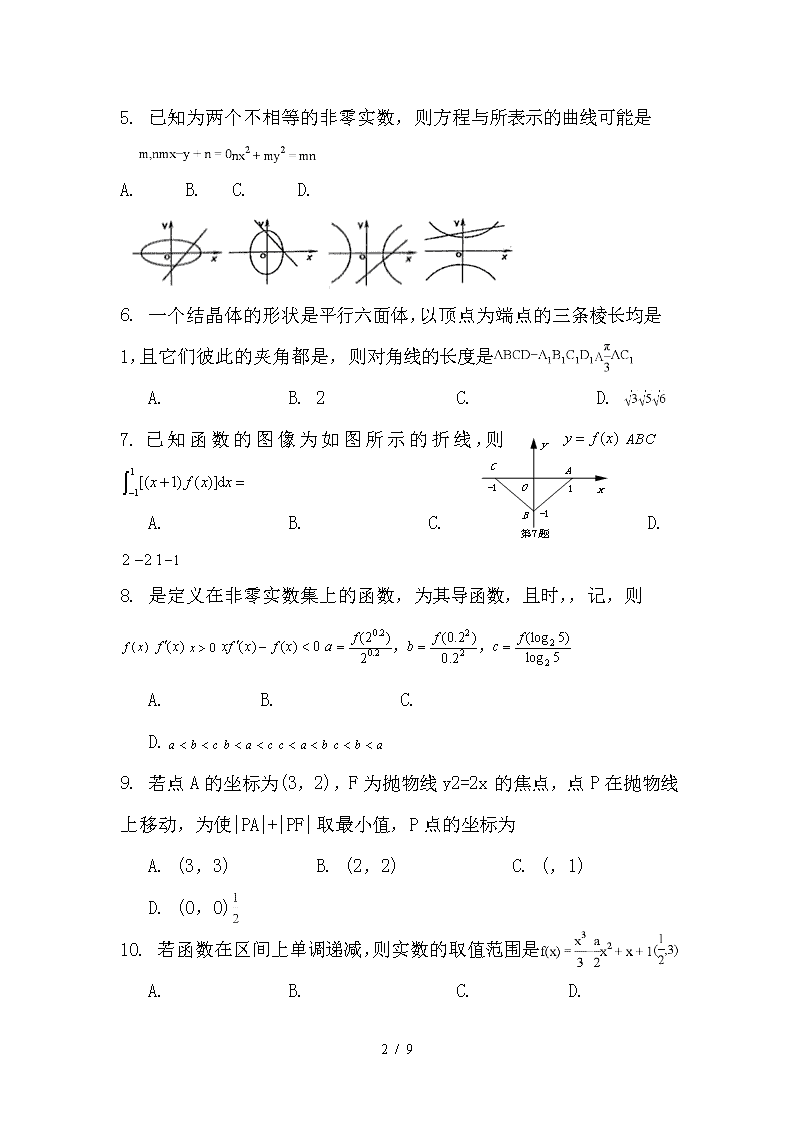 5. 已知为两个不相等的非零实数，则方程与所表示的曲线可能是
m,nmx−y + n = 0nx² + my² = mn
A. B. C. D.
y y y y
o x o x o x o x
6. 一个结晶体的形状是平行六面体,以顶点为端点的三条棱长均是
1,且它们彼此的夹角都是, 则对角线的长度是ABCD−A₁B₁C₁D₁A\frac{π}{3}AC₁
A. B. 2 C. D. √3√5√6
7. 已知函数的图像为如图所示的折线,则 y = f(x) ABC
∫_{−1}^{1}[(x+1)f(x)]dx =
y
C A
−1 O 1 x
B −1
第7题
A. B. C. D.
2 −2 1−1
8. 是定义在非零实数集上的函数，为其导函数，且时,，记，则
f(x) f′(x) x > 0 xf′(x)− f(x) < 0 a = \frac{f(2^{0.2})}{2^{0.2}}, b = \frac{f(0.2²)}{0.2²}, c = \frac{f(log₂ 5)}{log₂ 5}
A. B. C.
D. a < b < c b < a < c c < a < b c < b < a
9. 若点A的坐标为(3，2),F为抛物线y2=2x的焦点，点P在抛物线
上移动，为使|PA|+|PF|取最小值，P点的坐标为
A. (3，3) B. (2，2) C. (，1)
D. (0，0)\frac{1}{2}
10. 若函数在区间上单调递减,则实数的取值范围是f(x) = \frac{x³}{3} \frac{a}{2}x² + x + 1(\frac{1}{2},3)
A. B. C. D.
2 / 9